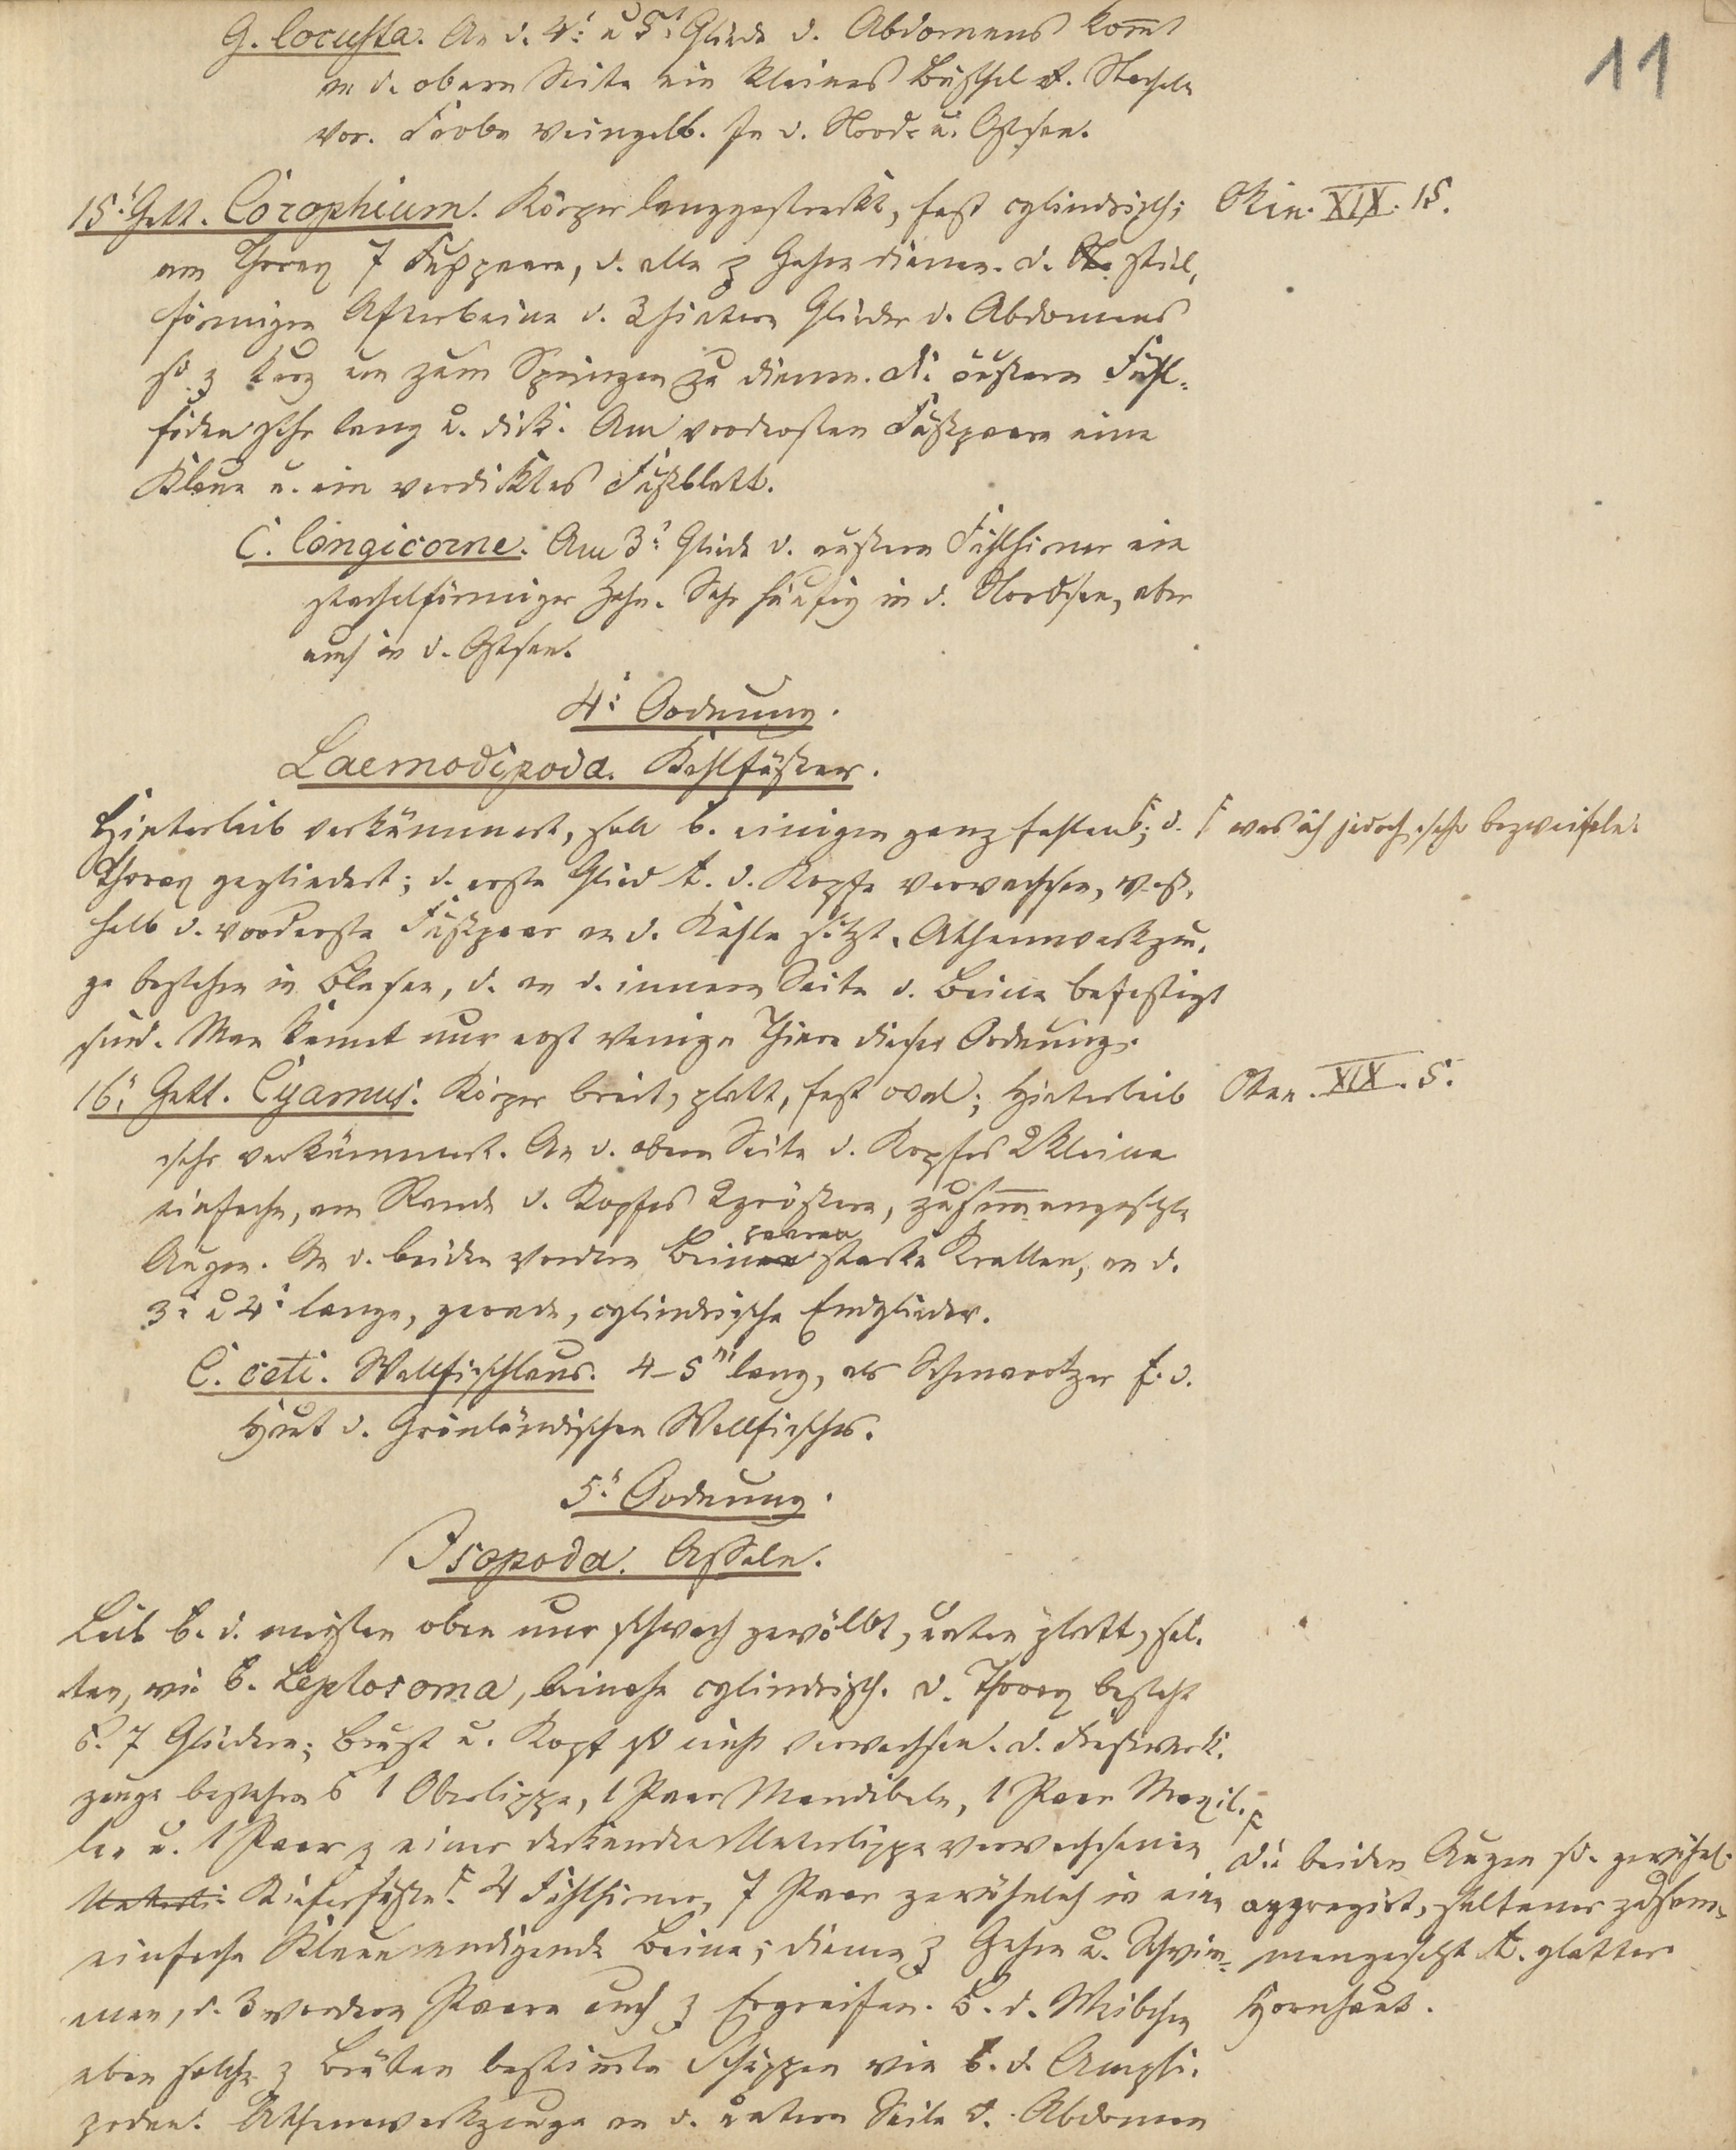 11
G. locusta. An d. 4t u 5t Gliede d. Abdomens kom̅t
an d. obern Seite ein kleines Büschel v. Stacheln
vor. Farbe weingelb. In d. Nord- u. Ostsee.
15t Gatt. Corophium. Körper langgestreckt, fast cylindrisch;
Oken. XIX. 15.
am Thorax 7 Fußpaare, d. alle z Gehen dienen. d. stiel-
förmigen Afterbeine d. 3 hintern Glieder d. Abdomens
sd z kurz um zum Springen zu dienen. di äußern Fühl-
fäden sehr lang u. dick. Am vordersten Fußpaare eine
Klaue u. ein verdicktes Fußblatt.
C. longicorne. Am 3t Gliede d. äußern Fühlhörner ein
stachelförmiger Zahn. Sehr häufig in d. Nordsee, aber
auch in d. Ostsee.
4t Ordnung.
Laemodipoda. Kehlfüßer.
Hinterleib verkümmert, soll b. einigen ganz fehlen F; d.
F was ich jedoch sehr bezweifele.
Thorax gegliedert; d. erste Glied t. d. Kopfe verwachsen, weß-
halb d. vorderste Fußpaar an d. Kehle sitzt. Athemwerkzeu-
ge bestehen in Blasen, d. an d. innern Seite d. Beine befestigt
sind. Man kennt nur erst wenige Thiere dieser Ordnung.
16t Gatt. Cyamus. Körper breit, platt, fast oval; Hinterleib
Oken. XIX. 5.
sehr verkümmert. An d. obern Seite d. Kopfes 2 kleine
einfache, am Rande d. Kopfes 2 größere, zusam̅engesetzte
Augen. An d. beiden vordern Beinpaaren starke Krallen, an d.
3t u 4t lange, gerade, cylindrische Endglieder.
C. ceti. Wallfischlaus. 4–5''' lang, als Schmarotzer f. d.
Haut d. Grönländischen Wallfisches.
5t Ordnung.
Isopoda. Asseln.
Leib b. d. meisten oben nur schwach gewölbt, unten platt, sel-
ten, wie b. Leptosoma, beinahe cylindrisch. d. Thorax besteht
6. 7 Gliedern; Brust u. Kopf sd nicht verwachsen. d. Freßwerk-
zeuge bestehen 6 1 Oberlippe, 1 Paar Mandibeln, 1 Paar Maxil-
len u. 1 Paar z einer deckenden Unterlippe verwachsenen
Unterli Kieferfüße F. 4 Fühlhörner, 7 Paar gewöhnlich in eine
einfache Klaue endigende Beine; dienen z Gehen u. Schwim-
men, d. 3 vordern Paare auch z Ergreifen. B. d. Weibchen
eben solche z Brüten bestim̅te Schuppen wie b. d. Amphi-
poden. Athemwerkzeuge an d. untern Seite d. Abdomen
F
die beiden Augen sd. gewöhnl.
aggregirt, seltener zusam-
mengesetzt t. glatter
Hornhaut.